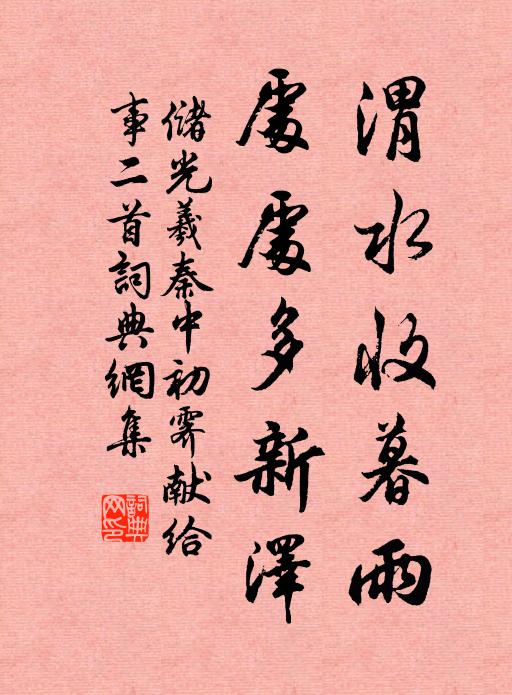 渭水收暮雨
處處多新澤
儲光羲秦中初霽献给
事二首詞典網集
詞典
网印